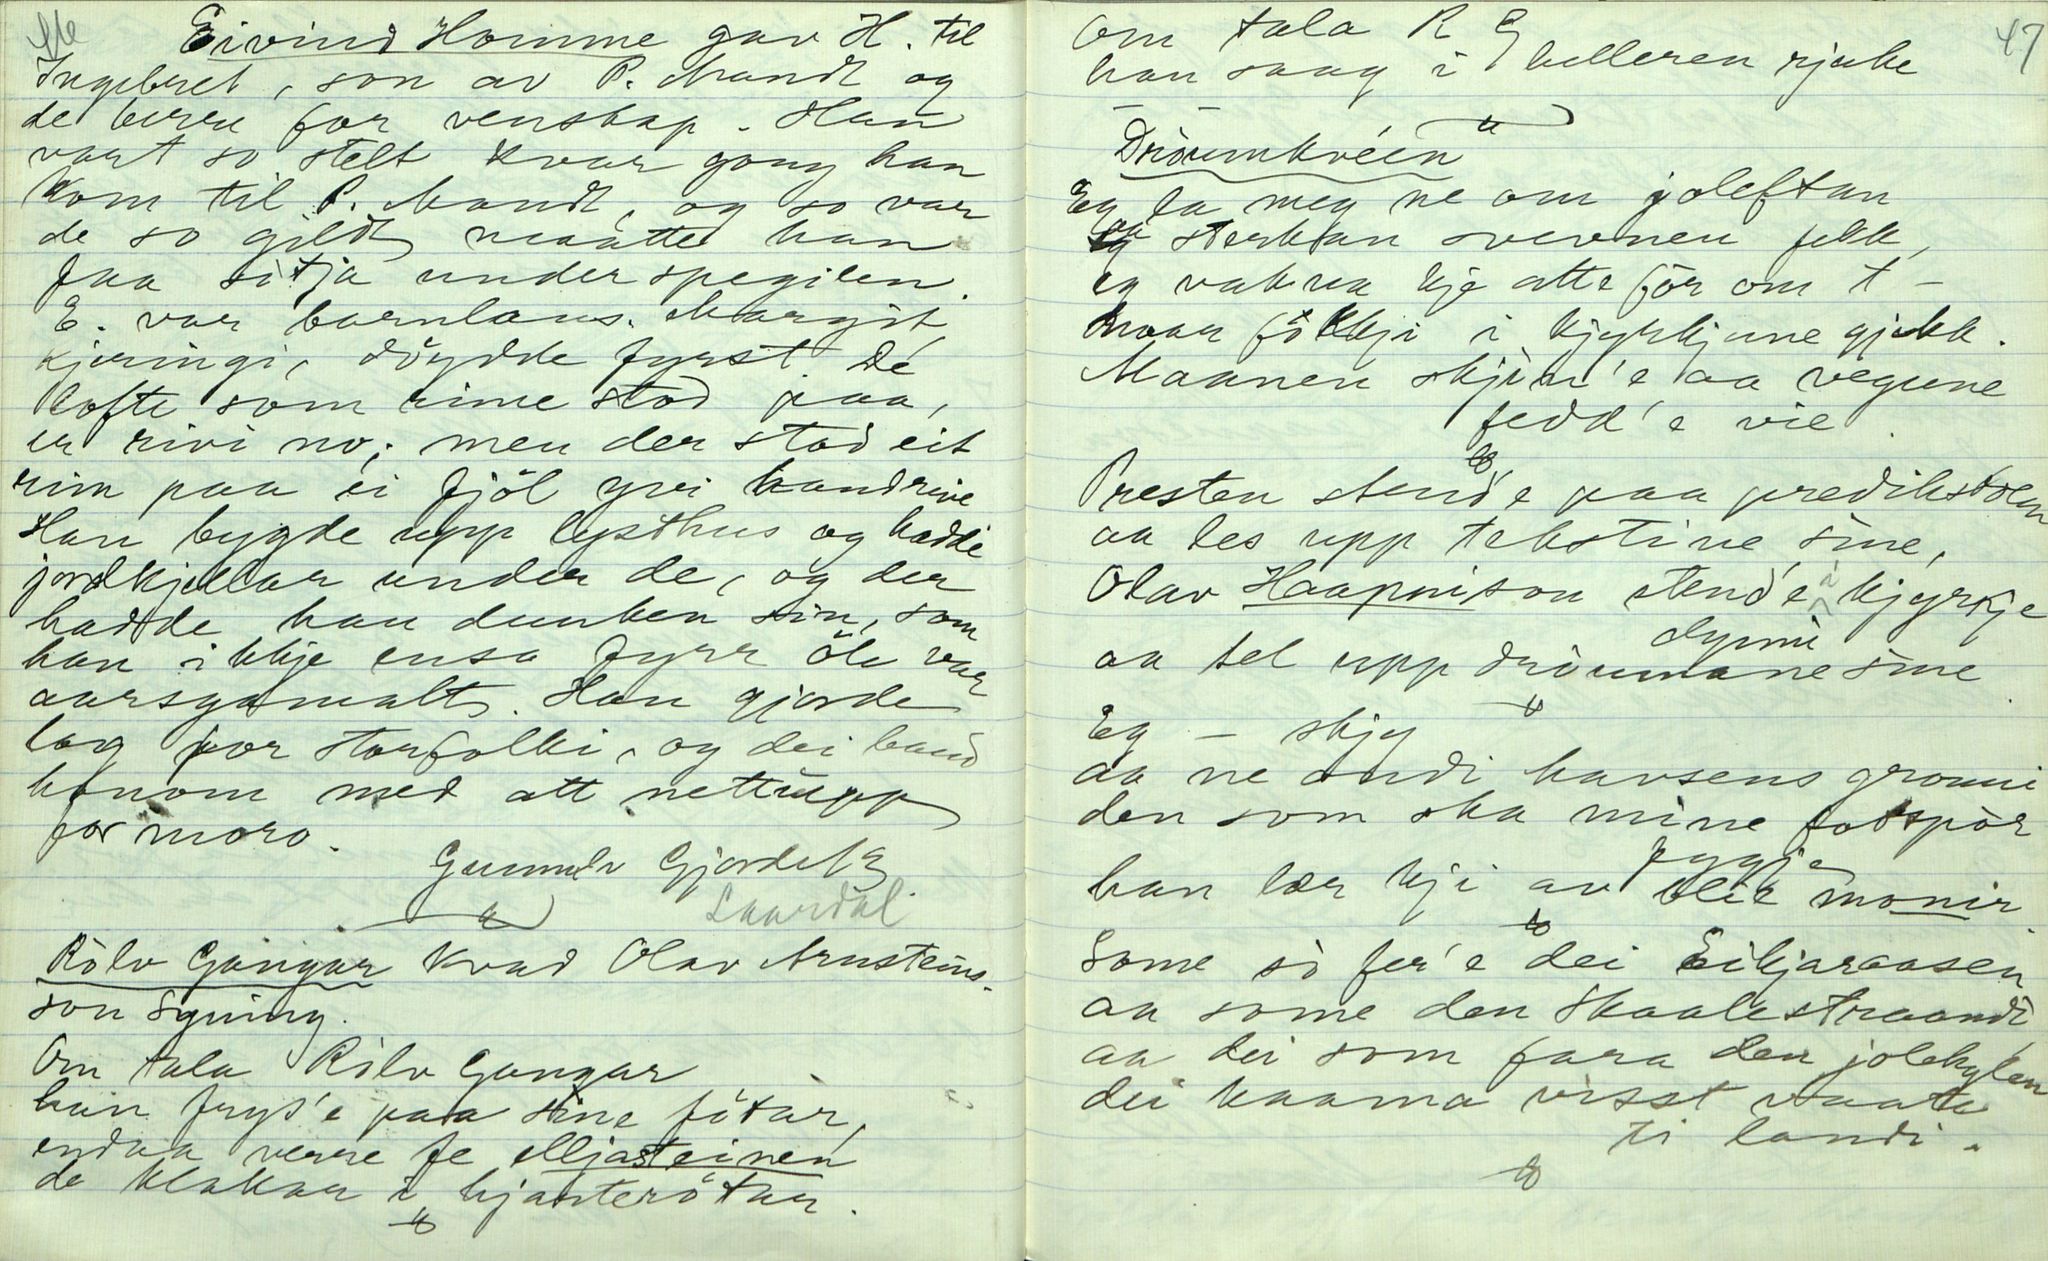 Eivind Homme gav H. til
Ingebret, son av P. Mandt og
de berre for venskap. Han
vart so stelt kvar gong han
kom til P. Mandt, og so var
de so gildt maatte han
faa sitja under spegilen.
E. var barnlaus. Margit,
kjeringi, döydde fyrst. Dé
lofte som rime stod paa,
er rivi no; men der stod eit
rim paa ei fjöl yvi
Han bygde upp lysthus og hadde
jordkjellar under de, og der
hadde han dunken sin, som
han ikkje ensa fyrr öle var
aarsgamalt. Han gjorde
lag for storfolki, og dei baud
honom med att nettupp
for moro.
Gunnulv Gjordal
Laardal
Rölv Gangar kvad Olav Arnsteins-
son Syning.
Om tala Rölv Gangar
han frys'e paa sine fötar,
endaa verre fe elljasteinen
de klakar i hjarterötar.
47
Om tala R G
han saag i helleren rjuke
Dröumkvéen
Eg la meg ne om joleftan
sterkan svevnen fekk,
eg vakna kje atte för om t –
naar fökkji i kjyrkjune gjekk.
Maanen skjin'e aa vegune
fedd'e vie
Presten stend'e paa predikstolen
aa les upp tekstine sine,
Olav Haapnison stend'e i kjyrkje
dynni
aa tel upp dröumane sine
Eg – skjy
aa ne andi havsens gronni
den som ska mine fotspör
fyggje
han lær kji av blie monir.
Some sö fer'e dei Eikjaraasen
aa some den Skaalestraandi
aa dei som fara den jolekylen
dei kaama visst vaate
ti landi.